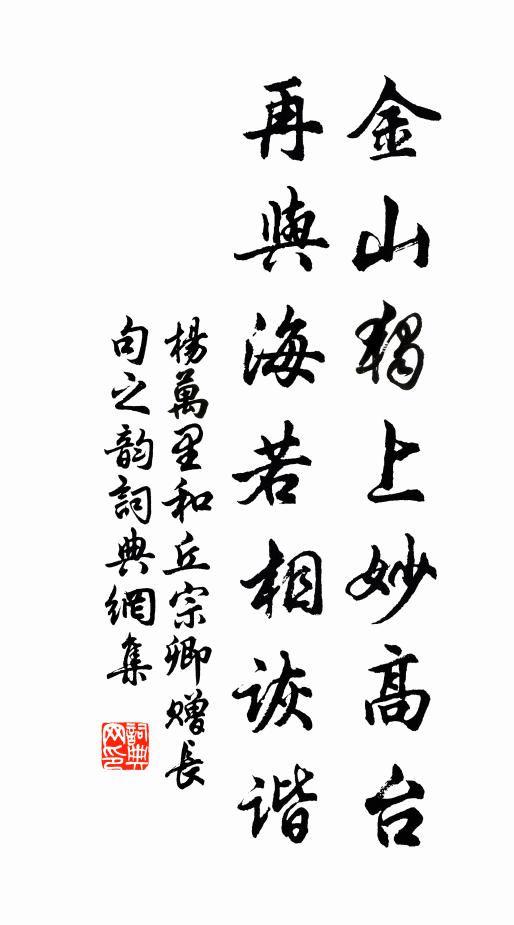 金山獨上妙高台
再與海若相诙谐
楊萬里和丘宗卿赠長
句之韵詞典網集
詞典网印